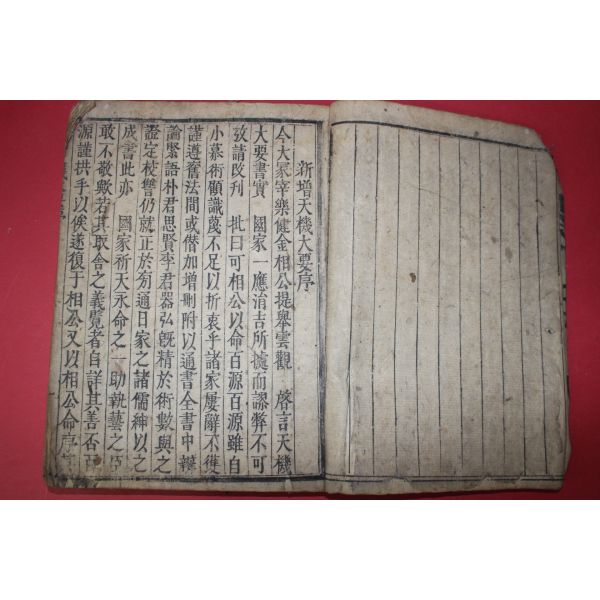 新增天機大要序
今大冢宰樂健金相公提擧雲觀 啓言天機
大要書實 國家一應涓吉所據而謬弊不可
攷請改刊 批曰可相公以命百源百源雖自
小慕術顧識蔑不足以折衷乎諸家屢辭不獲
謹遵舊法間或僣加增刪附以通書全書中輯
論緊語朴君思賢李君器弘旣精於術數與之
證定校讐仍就正於旁通日家之諸儒紳以之
成書此亦 國家祈天永命之一助執藝之臣
敢不敬歟若其取舍之義覽者自詳其善否百
源謹拱手以俟遂復于相公又以相公命序